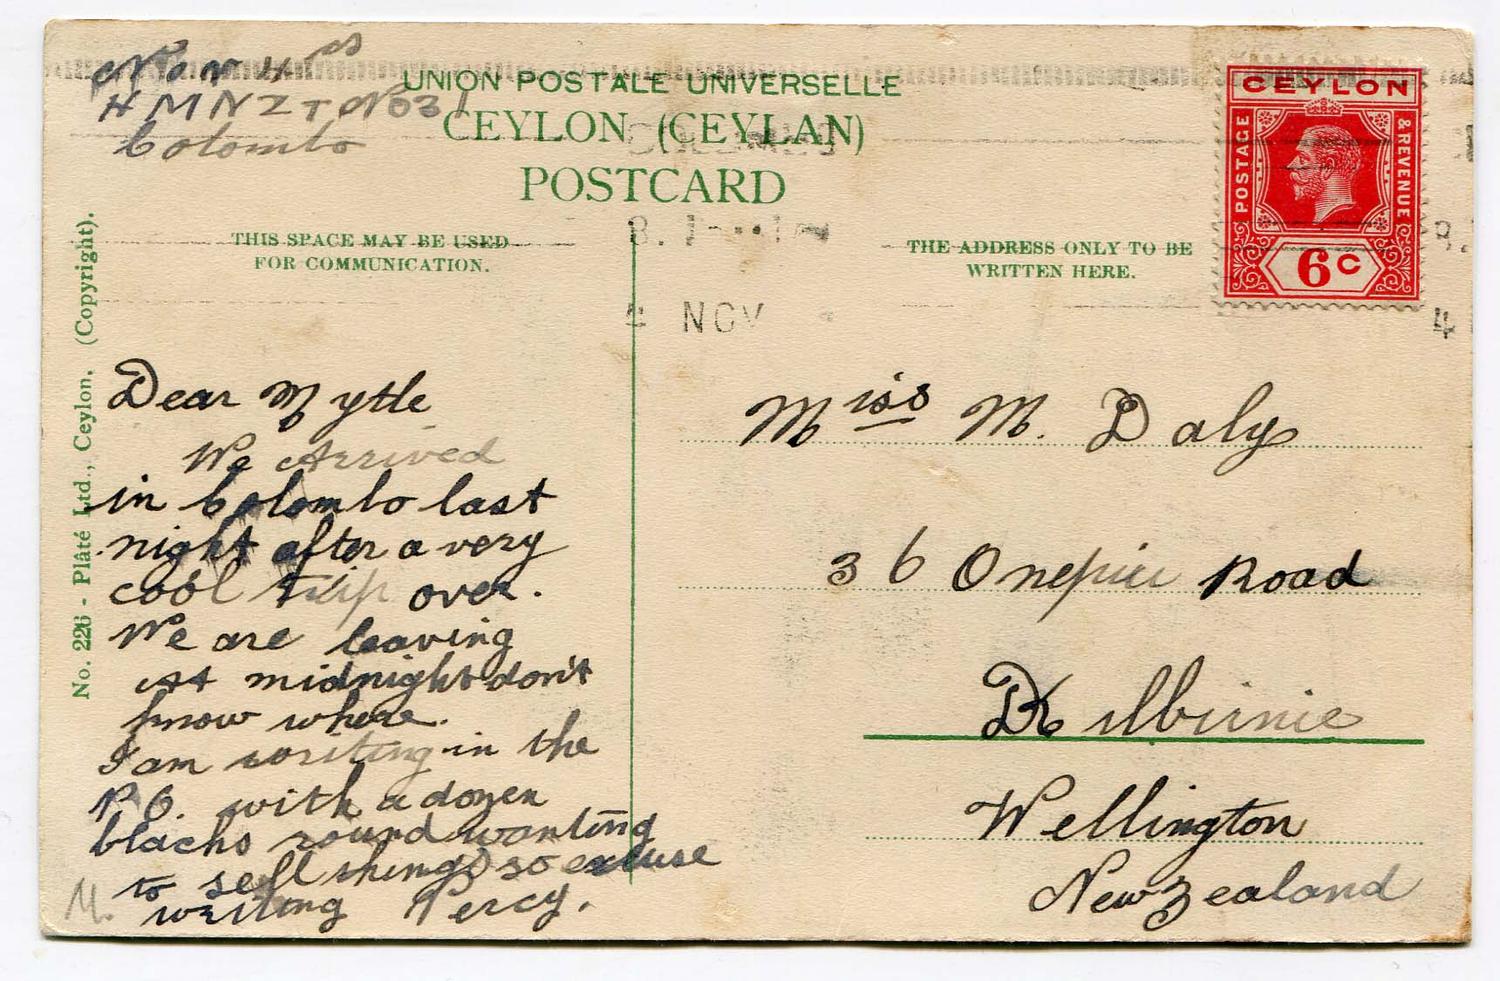 Nov 4 es
HMNZT No 3
Colombo
UNION POSTALE UNIVERSELLE
CEYLON (CEYLAN)
POSTCARD
THIS SPACE MAY BE USED
FOR COMMUNICATION.
THE ADDRESS ONLY TO BE
WRITTEN HERE.
CEYLON
POSTAGE
& REVENUE
6 C
NOV
4
No. 226 - Plâté Ltd., Ceylon. (Copyright).
Dear Mytle
We Arrived
in Colombo last
night after a very
cool trip over.
We are leaving
At midnight don't
know where.
I am writing in the
P.O. with a dozen
blacks round wanting
to sell things so excuse
writing Percy.
M.
Miss M. Daly
36 Onepu Road
Kilburnie
Wellington
New Zealand